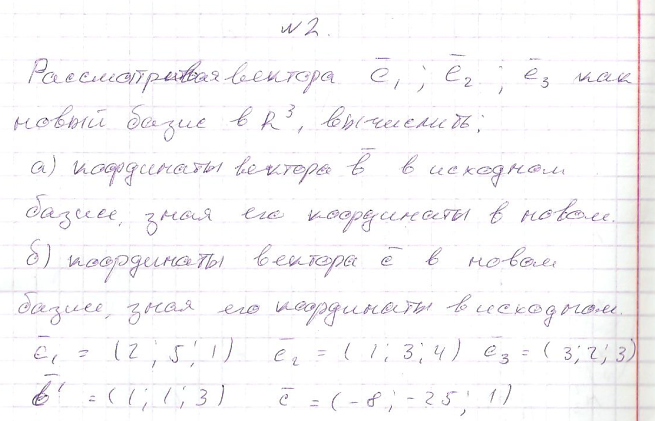 №2.
Рассматривая вектора ē₁ ; ē₂ ; ē₃ как
новый базис в R³, вычислить:
а) координаты вектора b̄ в исходном
базисе, зная его координаты в новом.
б) координаты вектора c̄ в новом
базисе, зная его координаты в исходном.
ē₁ = (2 ; 5 ; 1) ē₂ = (1 ; 3 ; 4) ē₃ = (3 ; 2 ; 3)
b̄' = (1 ; 1 ; 3) c̄ = (-8 ; -25 ; 1)